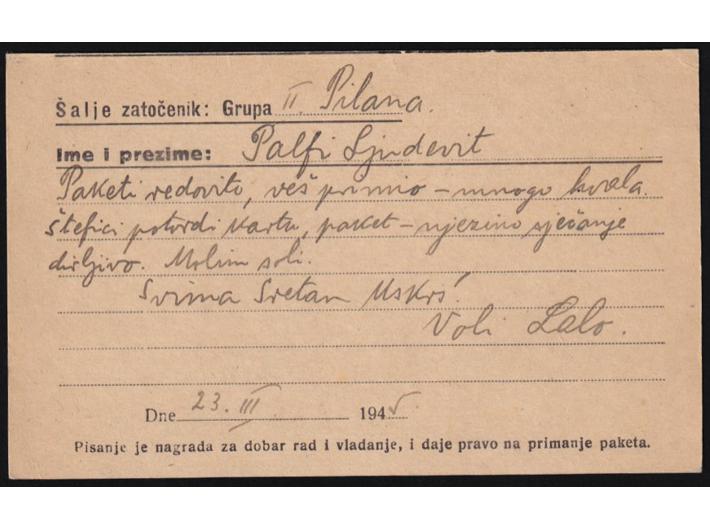 Šalje zatočenik: Grupa II. Pilana.
Ime i prezime: Palfi Ljudevit
Paketi redovito, veš primio – mnogo hvala.
Štefici potvrdi kartu, paket – njezino sjećanje
dirljivo. Molim soli.
Svima Sretan Uskrs!
Voli Lalo.
Dne 23. III. 1945
Pisanje je nagrada za dobar rad i vladanje, i daje pravo na primanje paketa.